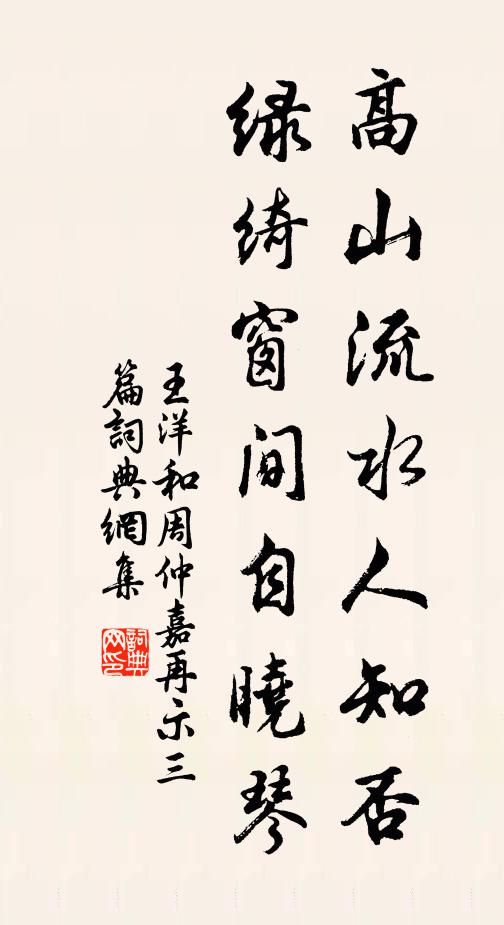 高山流水人知否
绿绮窗间自曉琴
王洋和周仲嘉再示三
篇詞典網集
詞典网印